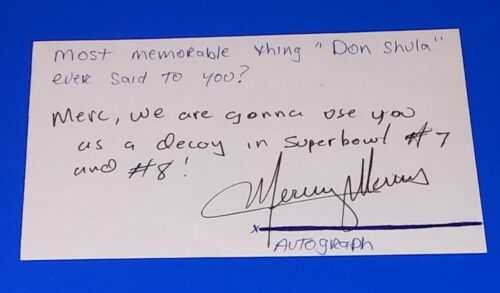 Most memorable thing "Don Shula"
ever said to you?
Merc, we are gonna use you
as a decoy in superbowl #7
and #8!
Mercury Morris
x
AUTOGRAPH